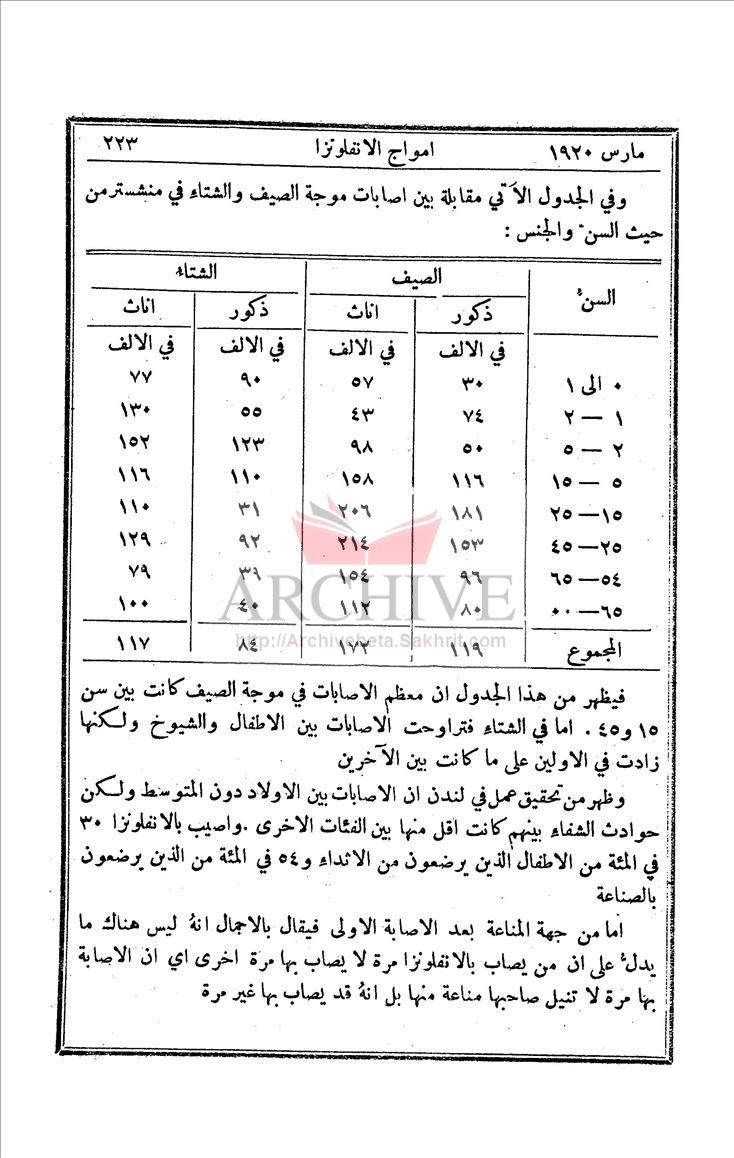 مارس ١٩٢٠ امواج الانفلونزا ٢٢٣
وفي الجدول الآتي مقابلة بين اصابات موجة الصيف والشتاء في منشستر من
حيث السنّ والجنس :
السنّ الصيف الشتاء
ذكور اناث ذكور اناث
في الالف في الالف في الالف في الالف
٠ الى ١ ٣٠ ٥٧ ٩٠ ٧٧
١ — ٢ ٧٤ ٤٣ ٥٥ ١٣٠
٢ — ٥ ٥٠ ٩٨ ١٢٣ ١٥٢
٥ — ١٥ ١١٦ ١٥٨ ١١٠ ١١٦
١٥—٢٥ ١٨١ ٢٠٦ ٣١ ١١٠
٢٥—٤٥ ١٥٣ ٢١٤ ٩٢ ١٢٩
٥٤—٦٥ ٩٦ ١٥٤ ٣٩ ٧٩
٦٥—٠٠ ٨٠ ١١٢ ٤٠ ١٠٠
المجموع ١١٩ ١٧٢ ٨٤ ١١٧
ARCHIVE
http://Archivebeta.Sakhrit.com
فيظهر من هذا الجدول ان معظم الاصابات في موجة الصيف كانت بين سن
١٥ و٤٥ . اما في الشتاء فتراوحت الاصابات بين الاطفال والشيوخ ولكنها
زادت في الاولين على ما كانت بين الآخرين
وظهر من تحقيق عمل في لندن ان الاصابات بين الاولاد دون المتوسط ولكن
حوادث الشفاء بينهم كانت اقل منها بين الفئات الاخرى . واصيب بالانفلونزا ٣٠
في المئة من الاطفال الذين يرضعون من الاثداء و٥٤ في المئة من الذين يرضعون
بالصناعة
اما من جهة المناعة بعد الاصابة الاولى فيقال بالاجمال انهُ ليس هناك ما
يدلُّ على ان من يصاب بالانفلونزا مرة لا يصاب بها مرة اخرى اي ان الاصابة
بها مرة لا تنيل صاحبها مناعة منها بل انهُ قد يصاب بها غير مرة